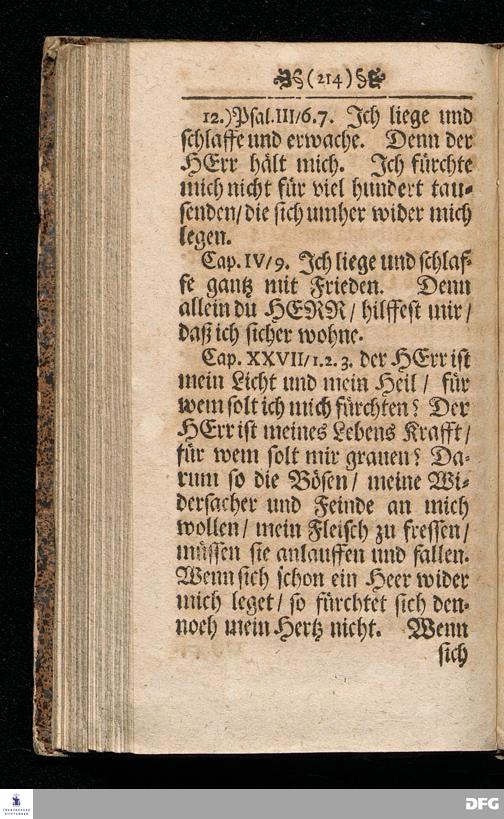 (214)
12.) Psal. III/6.7. Ich liege und
schlaffe und erwache. Denn der
HErr hält mich. Ich fürchte
mich nicht für viel hundert tau-
senden/ die sich umher wider mich
legen.
Cap. IV/9. Ich liege und schlaf-
fe gantz mit Frieden. Denn
allein du HERR/ hilffest mir/
daß ich sicher wohne.
Cap. XXVII/1.2.3. der HErr ist
mein Licht und mein Heil/ für
wem solt ich mich fürchten? Der
HErr ist meines Lebens Krafft/
für wem solt mir grauen? Da-
rum so die Bösen/ meine Wi-
dersacher und Feinde an mich
wollen/ mein Fleisch zu fressen/
müssen sie anlauffen und fallen.
Wenn sich schon ein Heer wider
mich leget/ so fürchtet sich den-
noch mein Hertz nicht. Wenn
sich
DFG